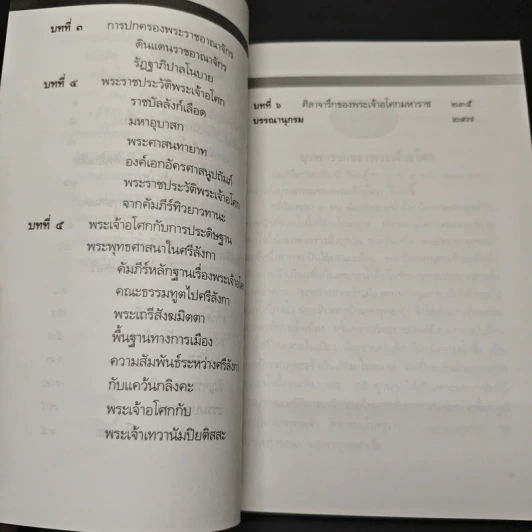 บทที่ ๓ การปกครองพระราชอาณาจักร
ดินแดนราชอาณาจักร
รัฏฐาภิปาลโนบาย
บทที่ ๔ พระราชประวัติพระเจ้าอโศก
ราชบัลลังก์เลือด
มหาอุบาสก
พระศาสนทายาท
องค์เอกอัครศาสนูปถัมภ์
พระราชประวัติพระเจ้าอโศก
จากคัมภีร์ทิวยาวทานะ
บทที่ ๕ พระเจ้าอโศกกับการประดิษฐาน
พระพุทธศาสนาในศรีลังกา
คัมภีร์หลักฐานเรื่องพระเจ้าอโศก
คณะธรรมทูตไปศรีลังกา
พระเถรีสังฆมิตตา
พื้นฐานทางการเมือง
ความสัมพันธ์ระหว่างศรีลังกา
กับแคว้นกลิงคะ
พระเจ้าอโศกกับ
พระเจ้าเทวานัมปิยติสสะ
บทที่ ๖ ศิลาจารึกของพระเจ้าอโศกมหาราช ๒๓๕
บรรณานุกรม ๒๙๗